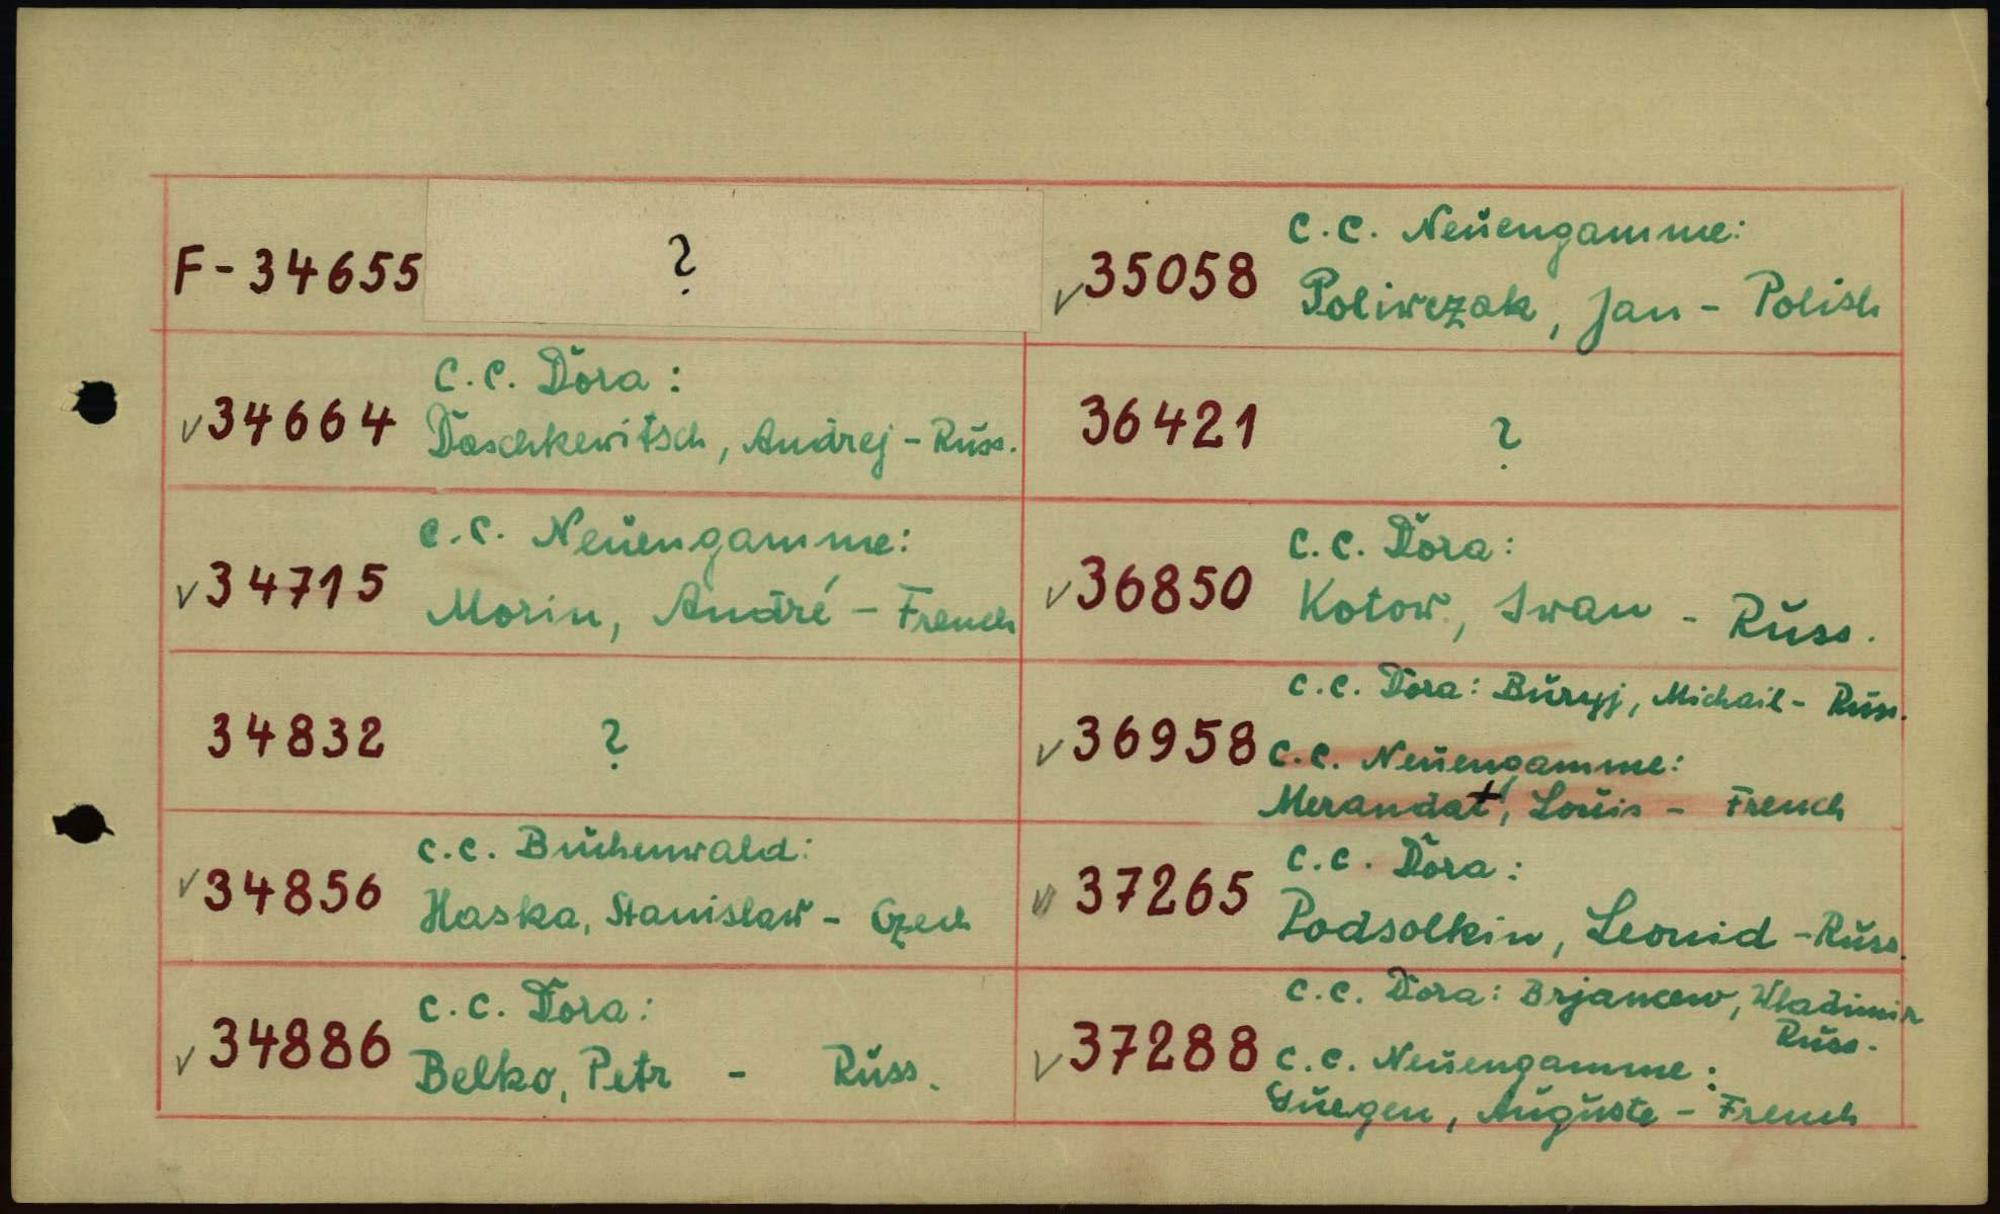 F-34655 ?
✓34664 C.C. Dora:
Daschkewitsch, Andrej - Russ.
✓34715 C.C. Neuengamme:
Morin, André - French
34832 ?
✓34856 C.C. Buchenwald:
Haska, Stanislaw - Czech
✓34886 C.C. Dora:
Belko, Petr - Russ.
✓35058 C.C. Neuengamme:
Poliwczak, Jan - Polish
36421 ?
✓36850 C.C. Dora:
Kotow, Iwan - Russ.
✓36958 C.C. Dora: Buryj, Michail - Russ.
C.C. Neuengamme:
Merandat, Louis - French
37265 C.C. Dora:
Podsolkin, Leonid - Russ.
✓37288 C.C. Dora: Brjancew, Wladimir
Russ.
C.C. Neuengamme:
Auguste - French